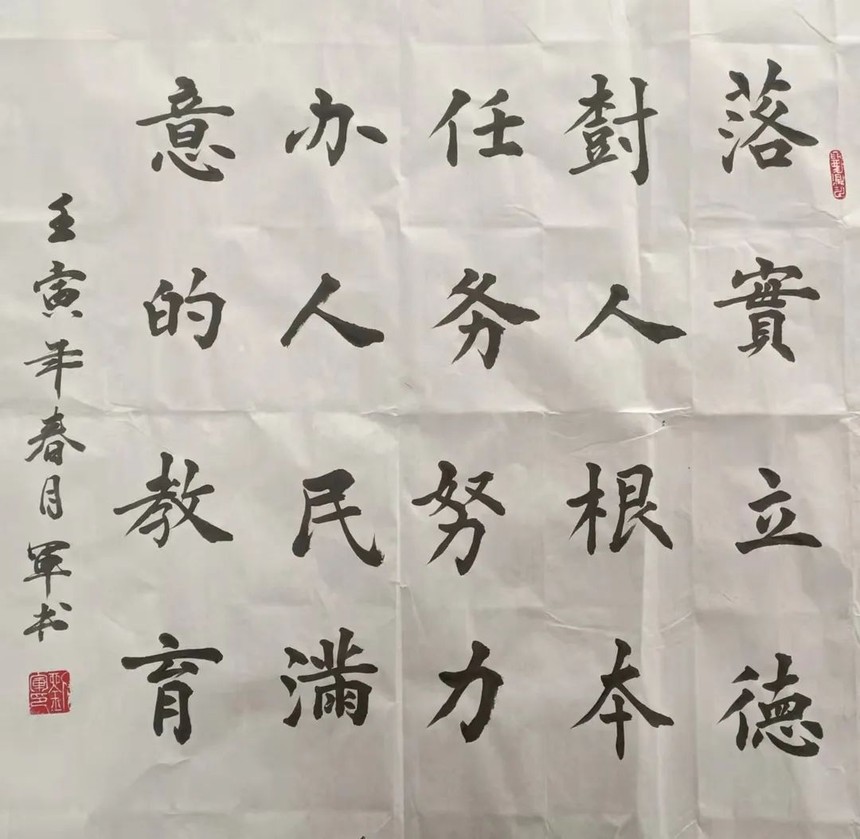 落實立德
樹人根本
任务努力
办人民滿
意的教育
壬寅年春月軍书